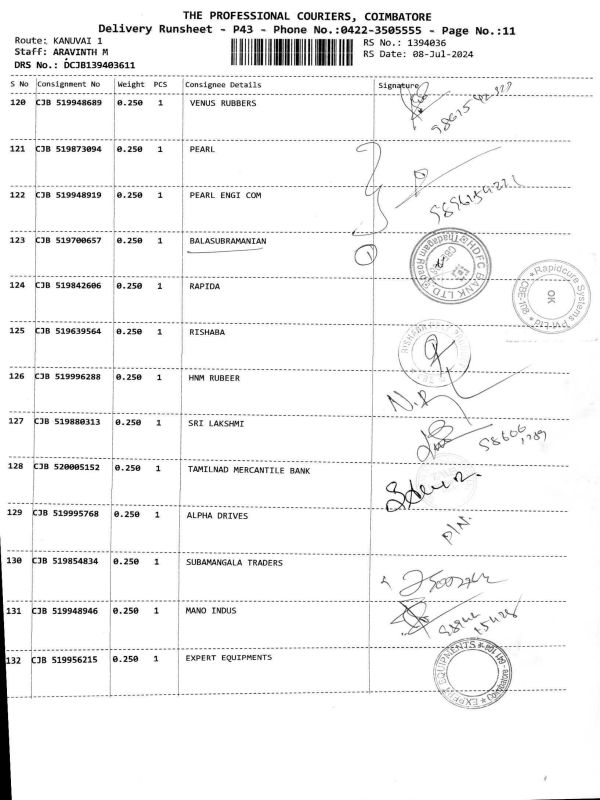 THE PROFESSIONAL COURIERS, COIMBATORE
Delivery Runsheet - P43 - Phone No.:0422-3505555 - Page No.:11
Route: KANUVAI 1
RS No.: 1394036
Staff: ARAVINTH M
RS Date: 08-Jul-2024
DRS No.: DCJB139403611
S No Consignment No Weight PCS Consignee Details Signature
120 CJB 519948689 0.250 1 VENUS RUBBERS
121 CJB 519873094 0.250 1 PEARL
122 CJB 519948919 0.250 1 PEARL ENGI COM
123 CJB 519700657 0.250 1 BALASUBRAMANIAN
1
HDFC BANK LTD
Rapidcure Systems Pvt Ltd
OK
124 CJB 519842606 0.250 1 RAPIDA
125 CJB 519639564 0.250 1 RISHABA
126 CJB 519996288 0.250 1 HNM RUBEER
127 CJB 519880313 0.250 1 SRI LAKSHMI
128 CJB 520005152 0.250 1 TAMILNAD MERCANTILE BANK
129 CJB 519995768 0.250 1 ALPHA DRIVES
P/N.
130 CJB 519854834 0.250 1 SUBAMANGALA TRADERS
131 CJB 519948946 0.250 1 MANO INDUS
132 CJB 519956215 0.250 1 EXPERT EQUIPMENTS
EXPERT EQUIPMENTS